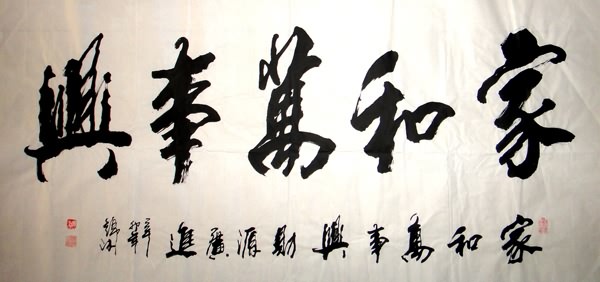 家和萬事興
家和萬事興財源廣進